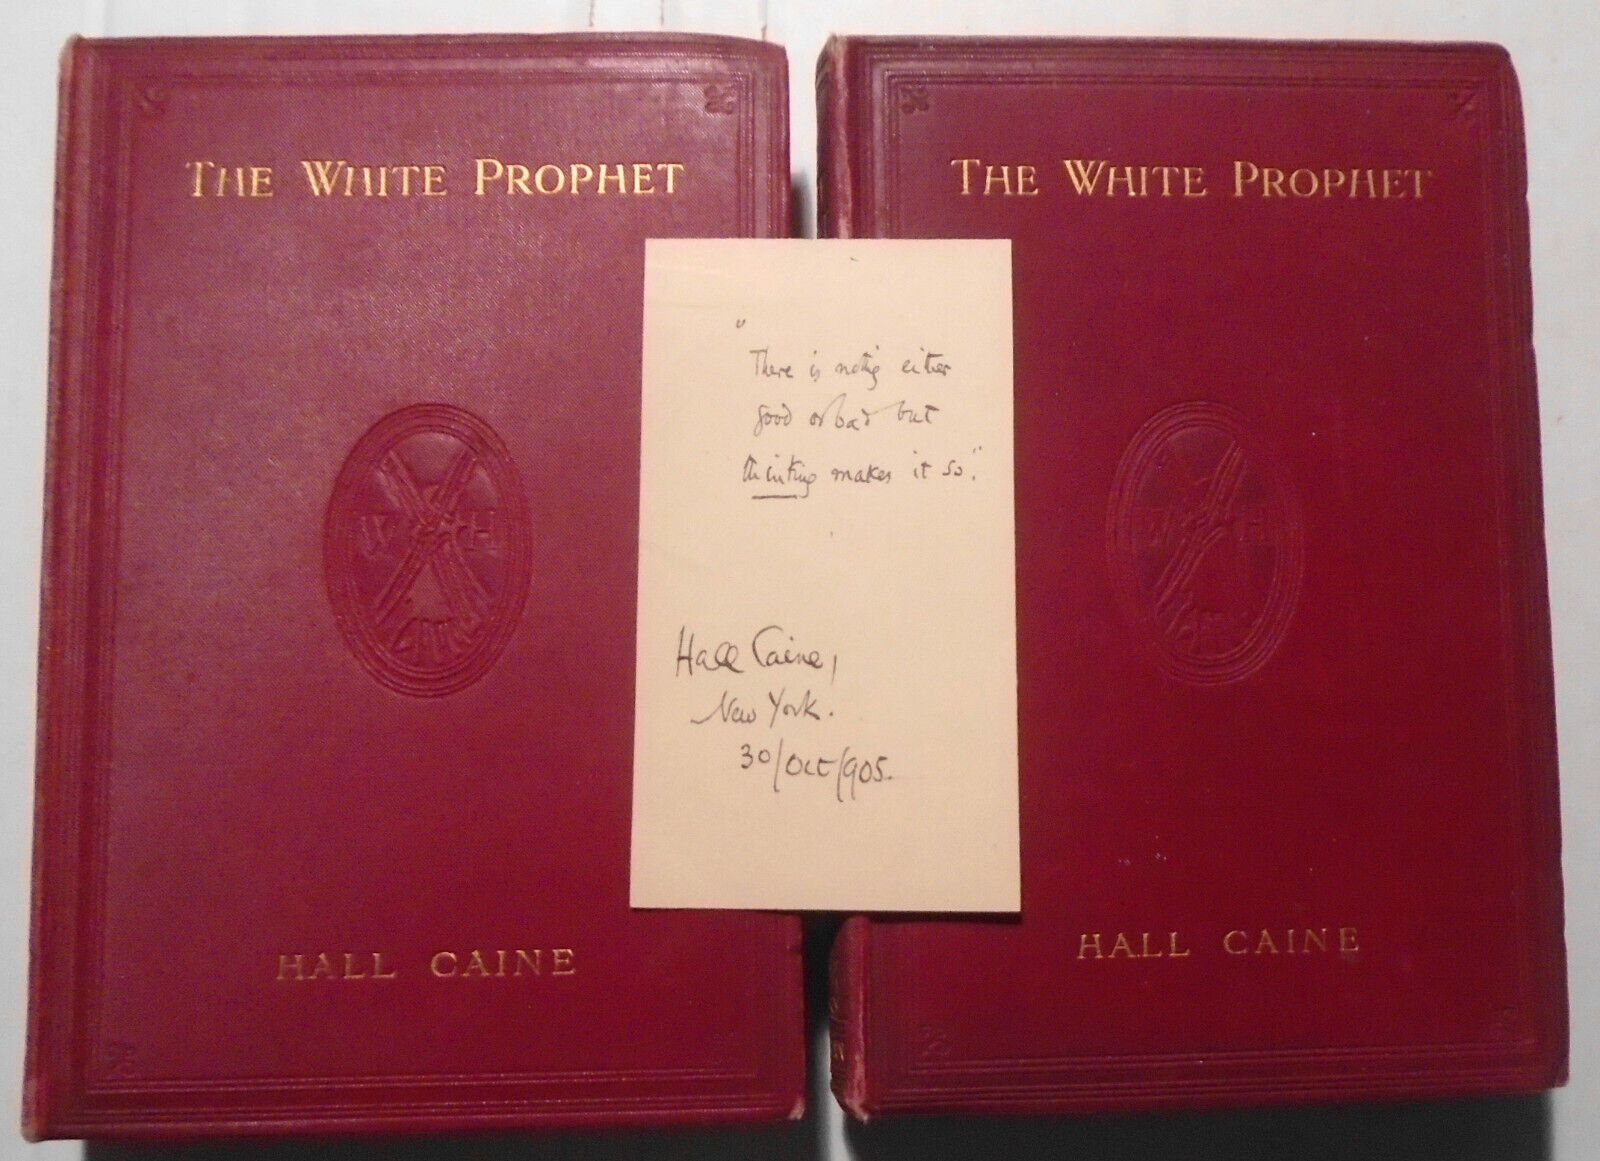 THE WHITE PROPHET
W H
HALL CAINE
"There is nothing either
good or bad but
thinking makes it so."
Hall Caine,
New York.
30/Oct/905.
THE WHITE PROPHET
W H
HALL CAINE